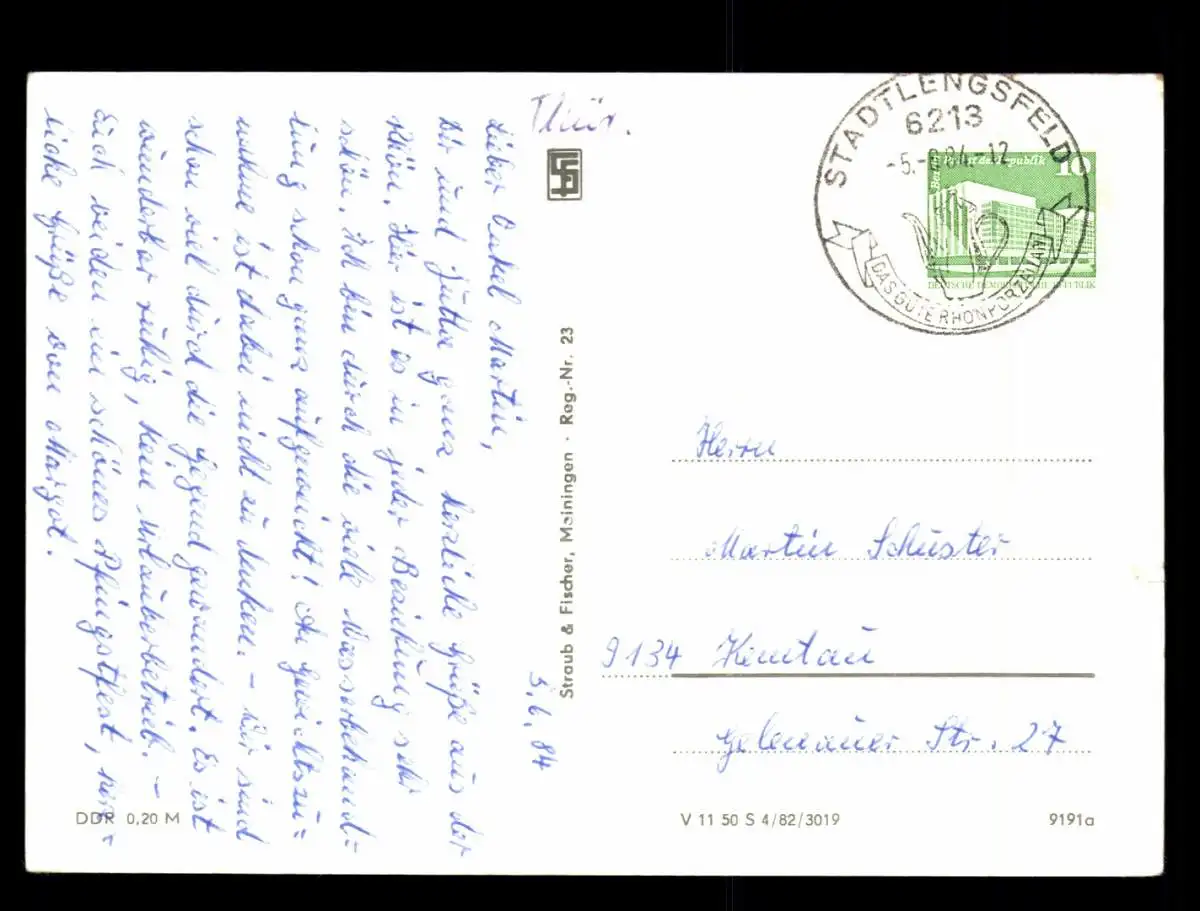 Thür.
5.6.84
Lieber Onkel Martin,
Dir und Jutta ganz herzliche Grüße aus der
Rhön. Hier ist es in jeder Beziehung sehr
schön. Ich bin durch die viele Wasserbehand=
lung schon ganz aufgeweicht! An Gewichtszu=
nahme ist dabei nicht zu denken. – Wir sind
schon viel durch die Gegend gewandert. Es ist
wunderbar ruhig, kein Urlauberbetrieb. –
Euch beiden ein schönes Pfingstfest, herz=
liche Grüße von Margot.
DDR 0,20 M
Straub & Fischer, Meiningen · Reg.-Nr. 23
STADTLENGSFELD
6213
-5.-6.84-12
DAS GUTE RHÖNPORZELLAN
10
Palast der Republik
DEUTSCHE DEMOKRATISCHE REPUBLIK
Herrn
Martin Schuster
9134 Kemtau
Gelenauer Str. 27
V 11 50 S 4/82/3019
9191a